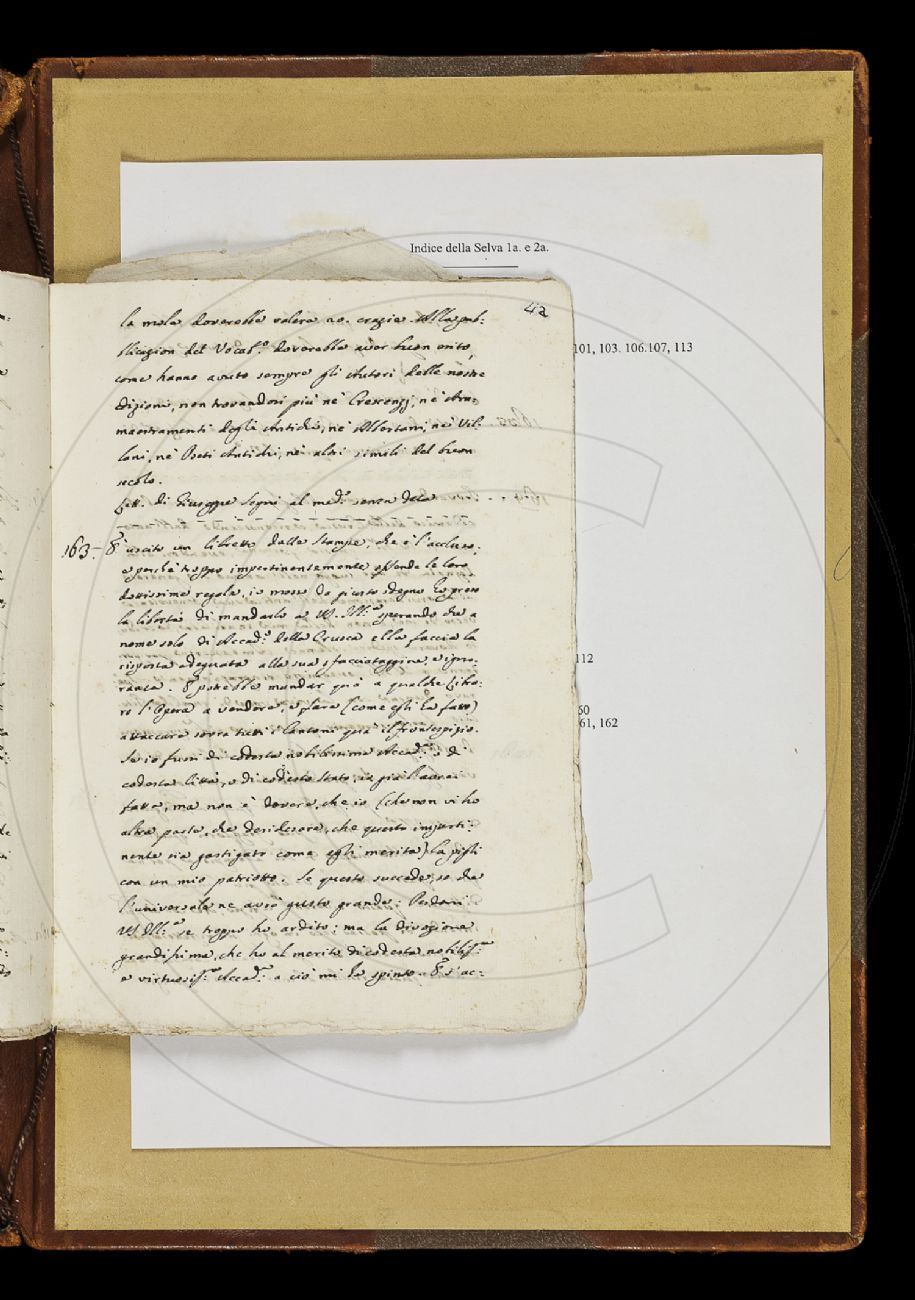 Indice della Selva 1a. e 2a.
42
101, 103. 106.107, 113
112
60
61, 162
la mole doverebbe valere crazie. Alla pub-
blicazion del Vocab.º doverebbe aver buon esito,
come hanno avuto sempre gli Autori delle nostre
edizioni, non trovandosi più nè Crescenzj, nè Am-
maestramenti degli Antichi, nè Albertani, nè Vil-
lani, nè Poeti Antichi, nè altri simili del buon
secolo.
Lett. di Giuseppe Segni al med.º senza data
163-
È uscito un libretto dalle stampe, che è l'accluso,
e perchè troppo impertinentemente offende le loro
dottissime regole, io mosso da giusto sdegno ho preso
la libertà di mandarlo a V.S. Ill.ª sperando che a
nome solo di Accad.º della Crusca ella faccia la
risposta adeguata alla sua sfacciataggine, e igno-
ranza. E potrebbe mandar quà a qualche Libra-
ro l'Opera a vendere, e fare (come egli ha fatto)
attaccare sovra tutti i Cantoni quà il frontespizio.
Se io fussi di codesta nobilissima Accad.ª, o di
codesta Città, o di codesto Stato, io già l'avrei
fatto, ma non è dovere, che io (che non vi ho
altra parte, che desiderare, che questo imperti-
nente sia gastigato come egli merita) la pigli
con un mio patriotto. Se questo succede, so che
l'universale ne avrà gusto grande: Perdoni
V.S. Ill.ª se troppo ho ardito: ma la divozione
grandissima, che ho al merito di codesta nobiliss.ª
e virtuosiss.ª Accad.ª a ciò mi ha spinto. E s'ac-